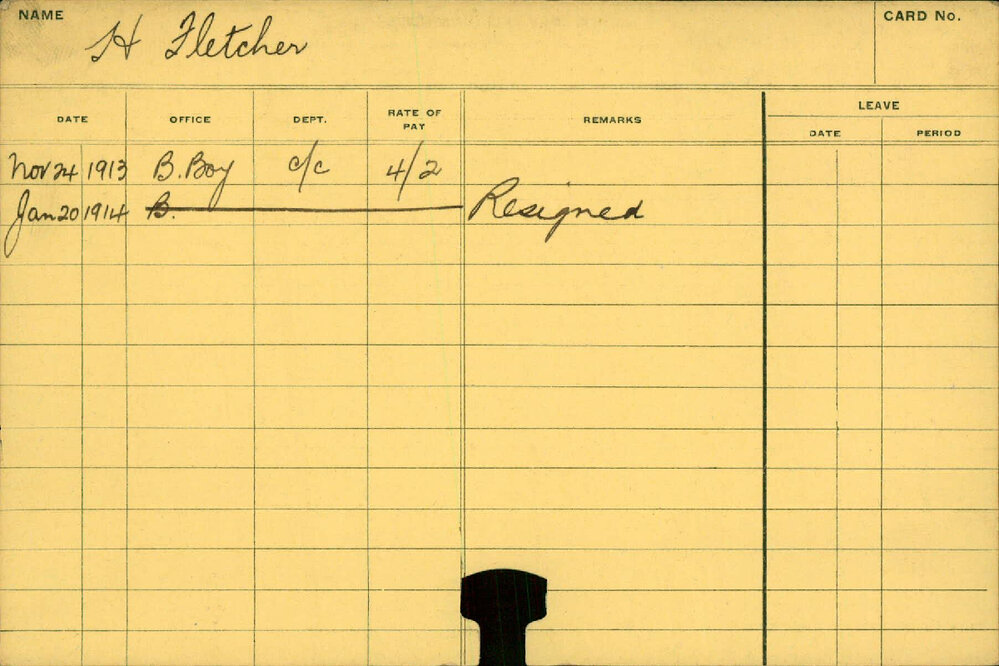 NAME H Fletcher CARD No.
DATE OFFICE DEPT. RATE OF PAY REMARKS LEAVE
DATE PERIOD
Nov 24 1913 B. Boy c/c 4/2
Jan 20 1914 B. Resigned